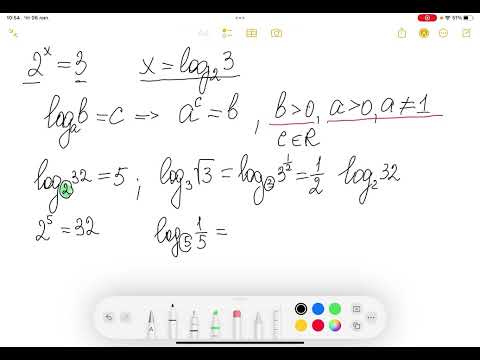 10:54 Чт 06 лип.
51%
2^x = 3 x = log_2 3
log_a b = c => a^c = b , b > 0, a > 0, a ≠ 1
c ∈ R
log_2 32 = 5 ; log_3 √3 = log_3 3^{1/2} = 1/2 log_2 32
2^5 = 32 log_5 1/5 =